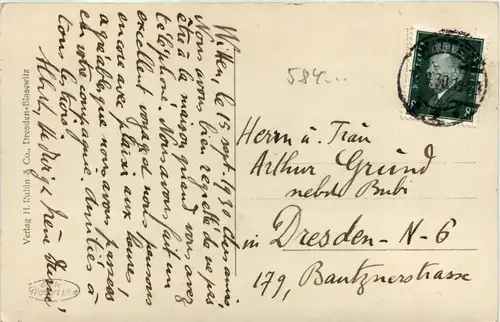 Witten, le 15 sept. 1930. Chers amis,
Nous avons bien regretté de ne pas
être à la maison quand vous avez
téléphoné. Nous avons fait un
excellent voyage et nous pensons
encore avec plaisir aux heures
agréables que nous avons passées
en votre compagnie. Amitiés à
tous les trois.
Albert
584...
Herrn u. Frau
Arthur Gründ
nebst Bubi
in Dresden-N-6
179, Bautznerstrasse
Verlag H. Ruhlin & Co., Dresden-Blasewitz
8 8